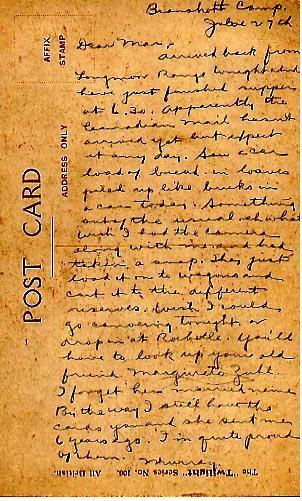 Bramshott Camp.
June 27th
Dear Mar,
arrived back from
Longmoor Range tonight and
have just finished supper
at 6.30. Apparently the
Canadian mail hasn't
arrived yet but expect
it any day. Saw a car
load of bread in loaves
piled up like bricks in
a car today. Something
out of the usual, eh what
wish I had the camera
along with me and had
taken a snap. They just
load it on to wagons and
cart it to the different
reserves. Wish I could
go canoeing tonight, or
drop in at Rochelle. You'll
have to look up your old
friend Marguerite Zuhl.
I forget her married name
By the way I still have the
cards you and she sent me
6 years ago. I'm quite proud
of them. Murray.
AFFIX
STAMP
ADDRESS ONLY
POST CARD
The "Twilight" Series No. 100. All British.